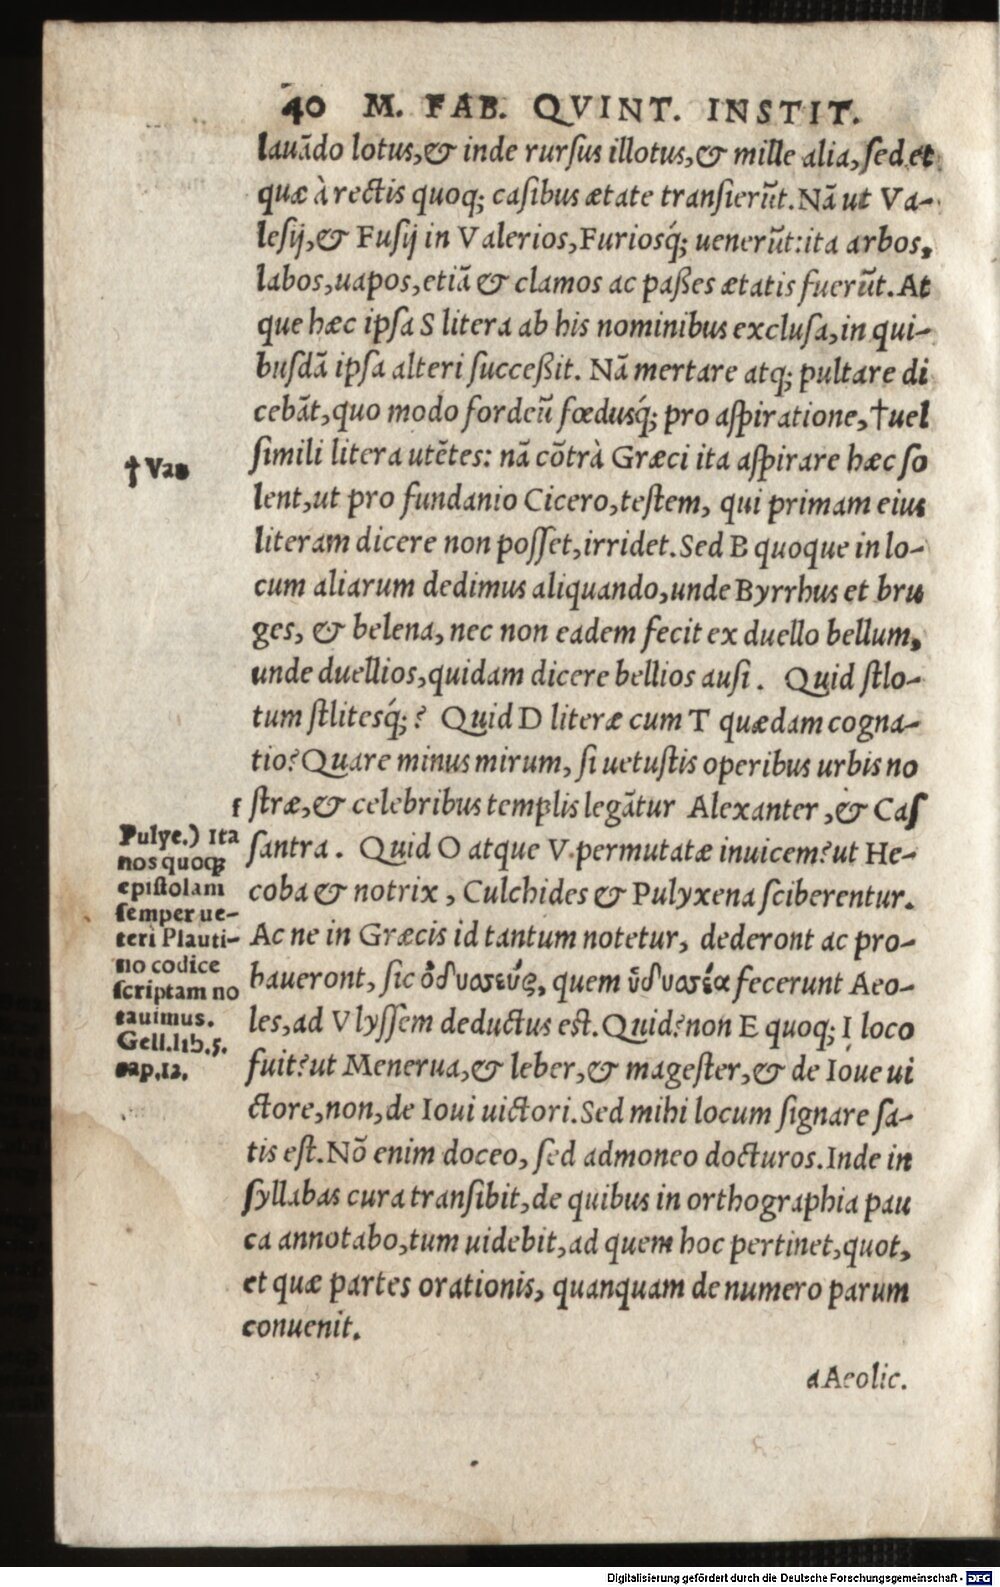 40 M. FAB. QVINT. INSTIT.
lauãdo lotus,& inde rursus illotus,& mille alia, sed et
quæ à rectis quoq; casibus ætate transierũt. Nã ut Va-
lesij,& Fusij in Valerios, Furiosq́; uenerũt: ita arbos,
labos, uapos, etiã & clamos ac paßes ætatis fuerũt. At
que hæc ipsa S litera ab his nominibus exclusa, in qui-
busdã ipsa alteri succeßit. Nã mertare atq; pultare di
cebãt, quo modo fordeũ fœdusq́; pro aspiratione, †uel
† Vau
simili litera utẽtes: nã cõtrà Græci ita aspirare hæc so
lent, ut pro fundanio Cicero, testem, qui primam eius
literam dicere non posset, irridet. Sed B quoque in lo-
cum aliarum dedimus aliquando, unde Byrrhus et bru
ges, & belena, nec non eadem fecit ex duello bellum,
unde duellios, quidam dicere bellios ausi. Quid stlo-
tum stlitesq́;? Quid D literæ cum T quædam cogna-
tio? Quare minus mirum, si uetustis operibus urbis no
f stræ,& celebribus templis legãtur Alexanter, & Cas
santra. Quid O atque V permutatæ inuicem? ut He-
coba & notrix, Culchides & Pulyxena sciberentur.
Ac ne in Græcis id tantum notetur, dederont ac pro-
baueront, sic ὀδυσσεύς, quem ὐδυσσέα fecerunt Aeo-
les, ad Vlyssem deductus est. Quid? non E quoq; I loco
fuit? ut Menerua,& leber,& magester,& de Ioue ui
ctore, non, de Ioui uictori. Sed mihi locum signare sa-
tis est. Nõ enim doceo, sed admoneo docturos. Inde in
syllabas cura transibit, de quibus in orthographia pau
ca annotabo, tum uidebit, ad quem hoc pertinet, quot,
et quæ partes orationis, quanquam de numero parum
conuenit.
Pulye.) Ita
nos quoqꝫ
epistolam
semper ue-
teri Plauti-
no codice
scriptam no
tauimus.
Gell. lib. 5.
cap. 12.
a Aeolic.
Digitalisierung gefördert durch die Deutsche Forschungsgemeinschaft - DFG